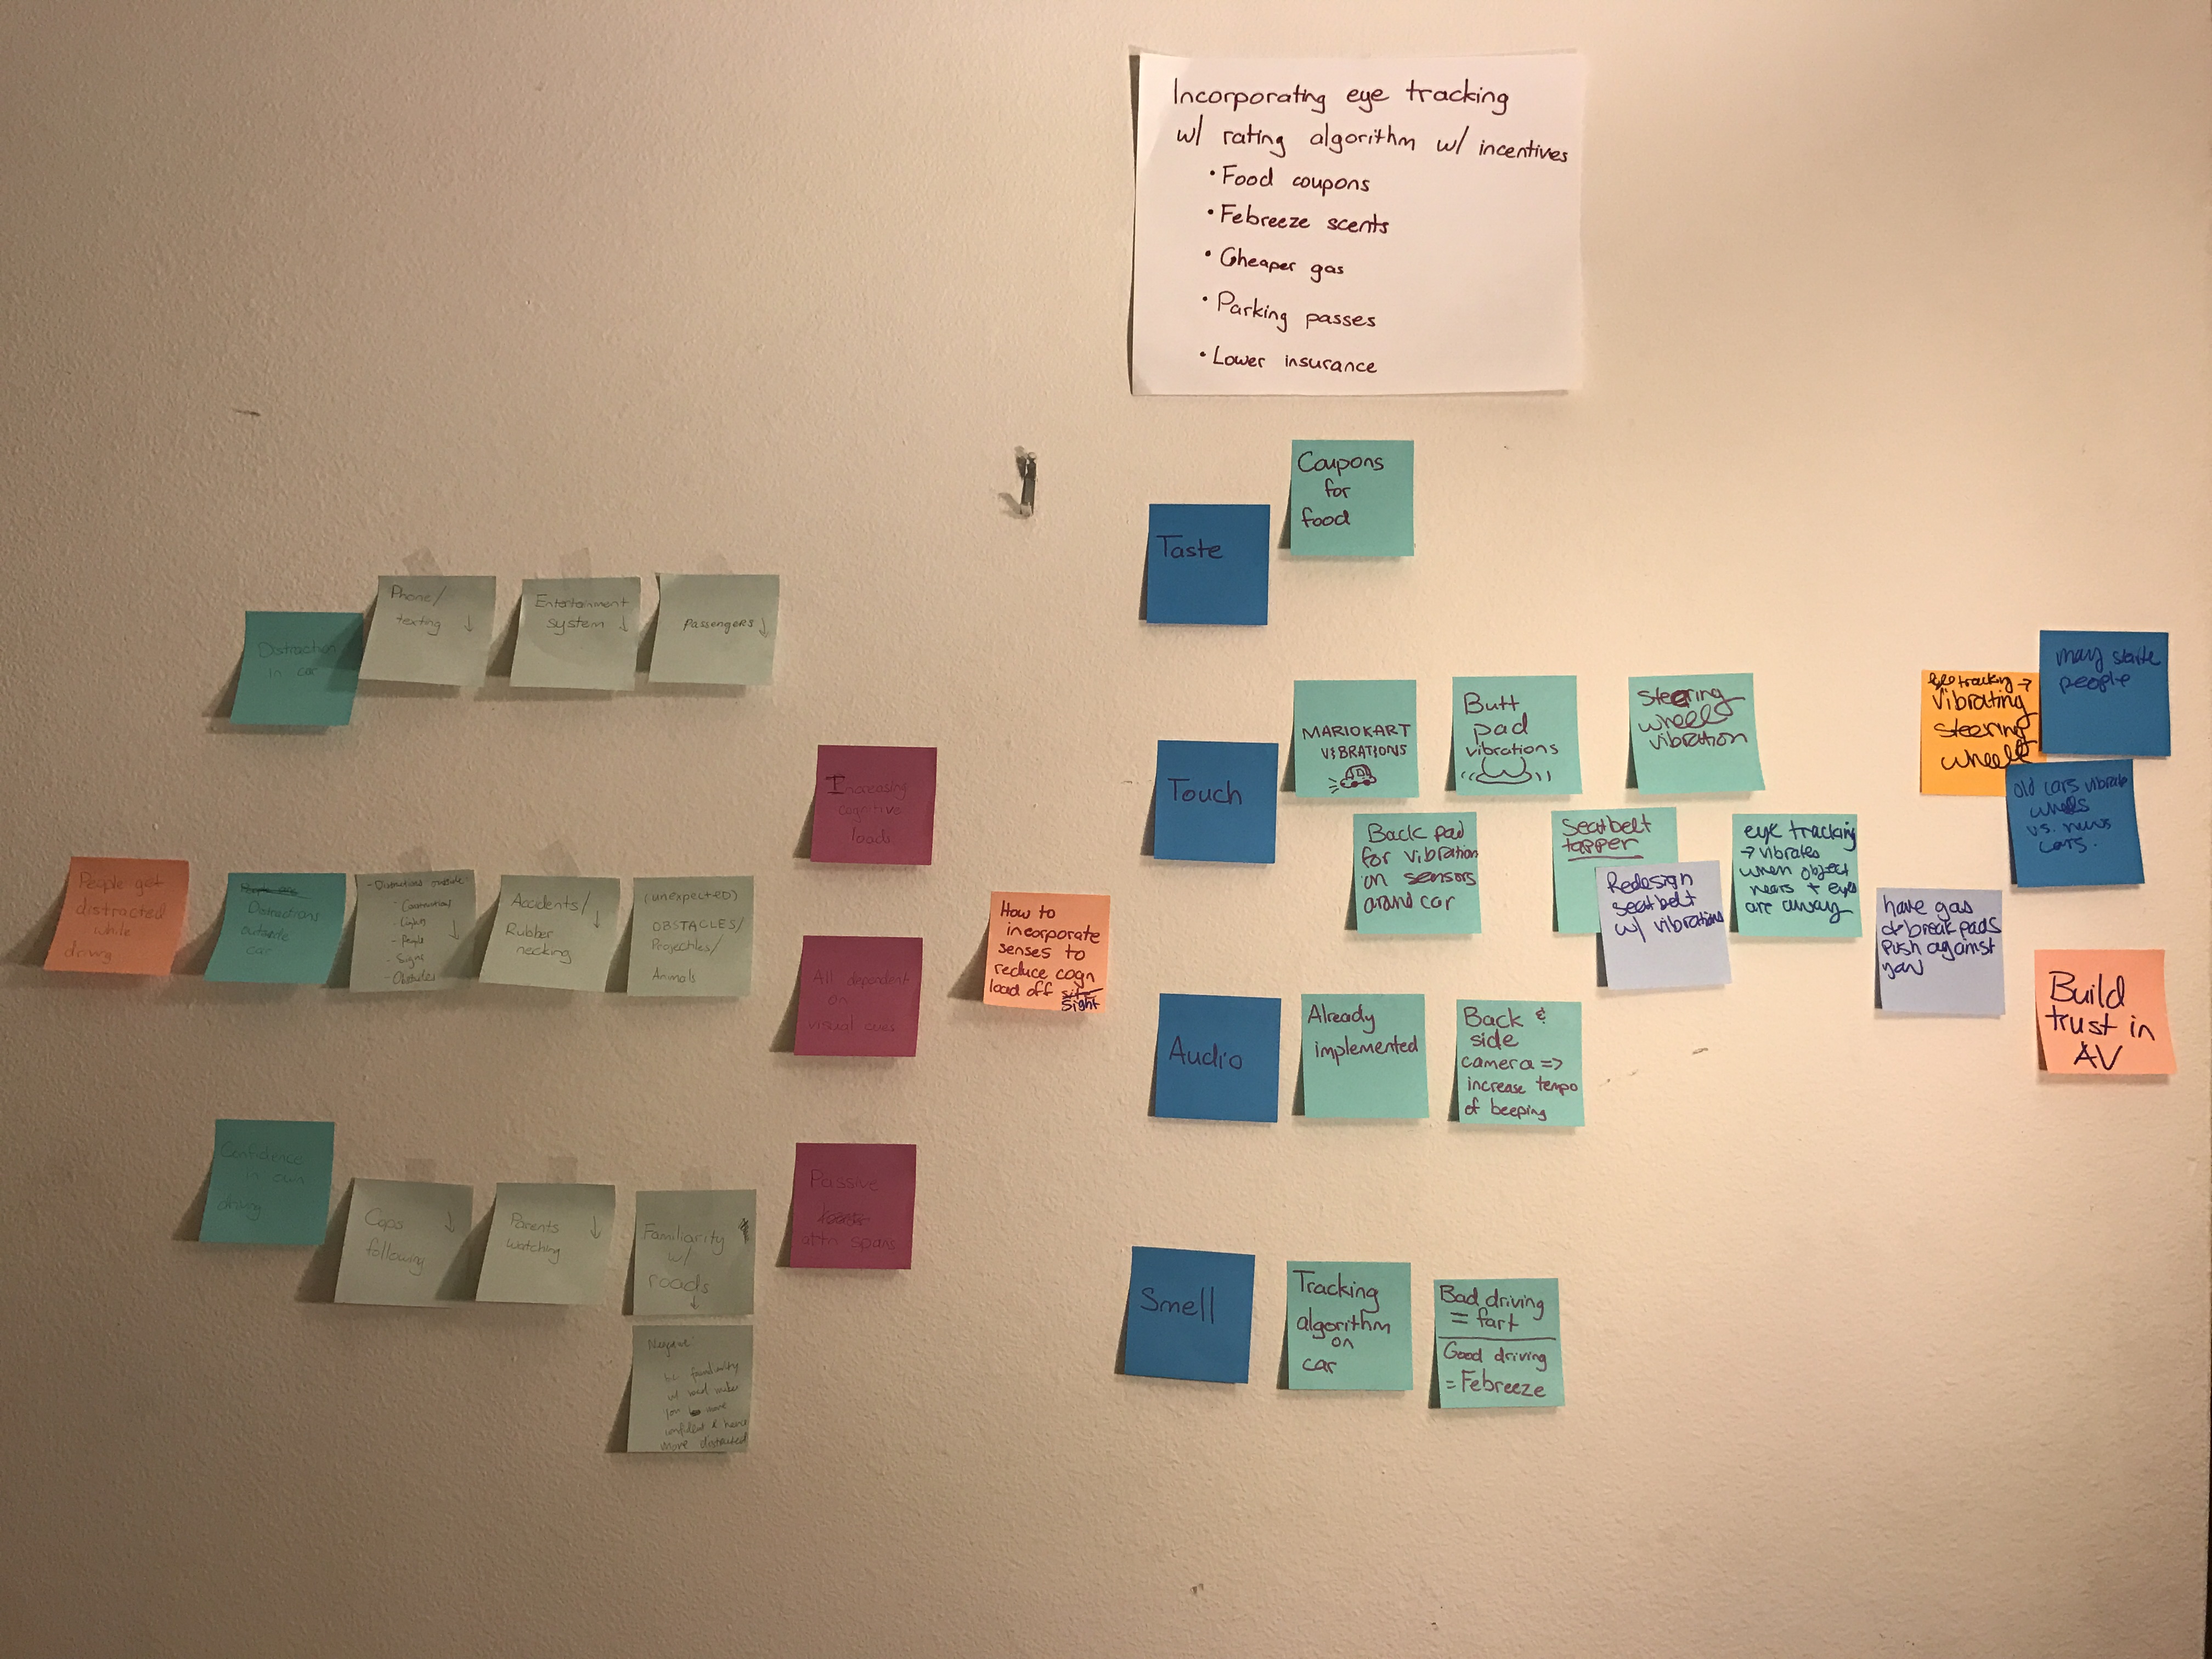 Incorporating eye tracking
w/ rating algorithm w/ incentives
• Food coupons
• Febreeze scents
• Cheaper gas
• Parking passes
• Lower insurance
People get
distracted
while
Distraction
in car
Phone/
texting ↓
Entertainment
system ↓
passengers ↓
Distractions
outside
car
- Distractions outside
- Construction
- Lights
- People
- Signs
- Obstacles
Accidents/
Rubber
necking
(unexpected)
OBSTACLES/
Projectiles/
Animals
Confidence
in own
driving
Cops
following
Parents
watching
Familiarity
w/
roads
↓
Negative
b/c familiarity
w/ road makes
you more
confident & hence
more distracted
Increasing
cognitive
loads
All dependent
on
visual cues
Passive
attn spans
How to
incorporate
senses to
reduce cogn
load off
Sight
Taste
Coupons
for
food
Touch
MARIOKART
VIBRATIONS
Butt
pad
vibrations
Steering
wheel
vibration
Back pad
for vibration
on sensors
around car
Seatbelt
tapper
Redesign
seatbelt
w/ vibrations
eye tracking
→ vibrates
when object
nears + eyes
are away
eye tracking →
vibrating
steering
wheel
may startle
people
old cars vibrate
wheels
vs. news
cars.
have gas
& break pads
push against
you
Build
trust in
AV
Audio
Already
implemented
Back &
side
camera =>
increase tempo
of beeping
Smell
Tracking
algorithm
on
car
Bad driving
= fart
Good driving
= Febreeze